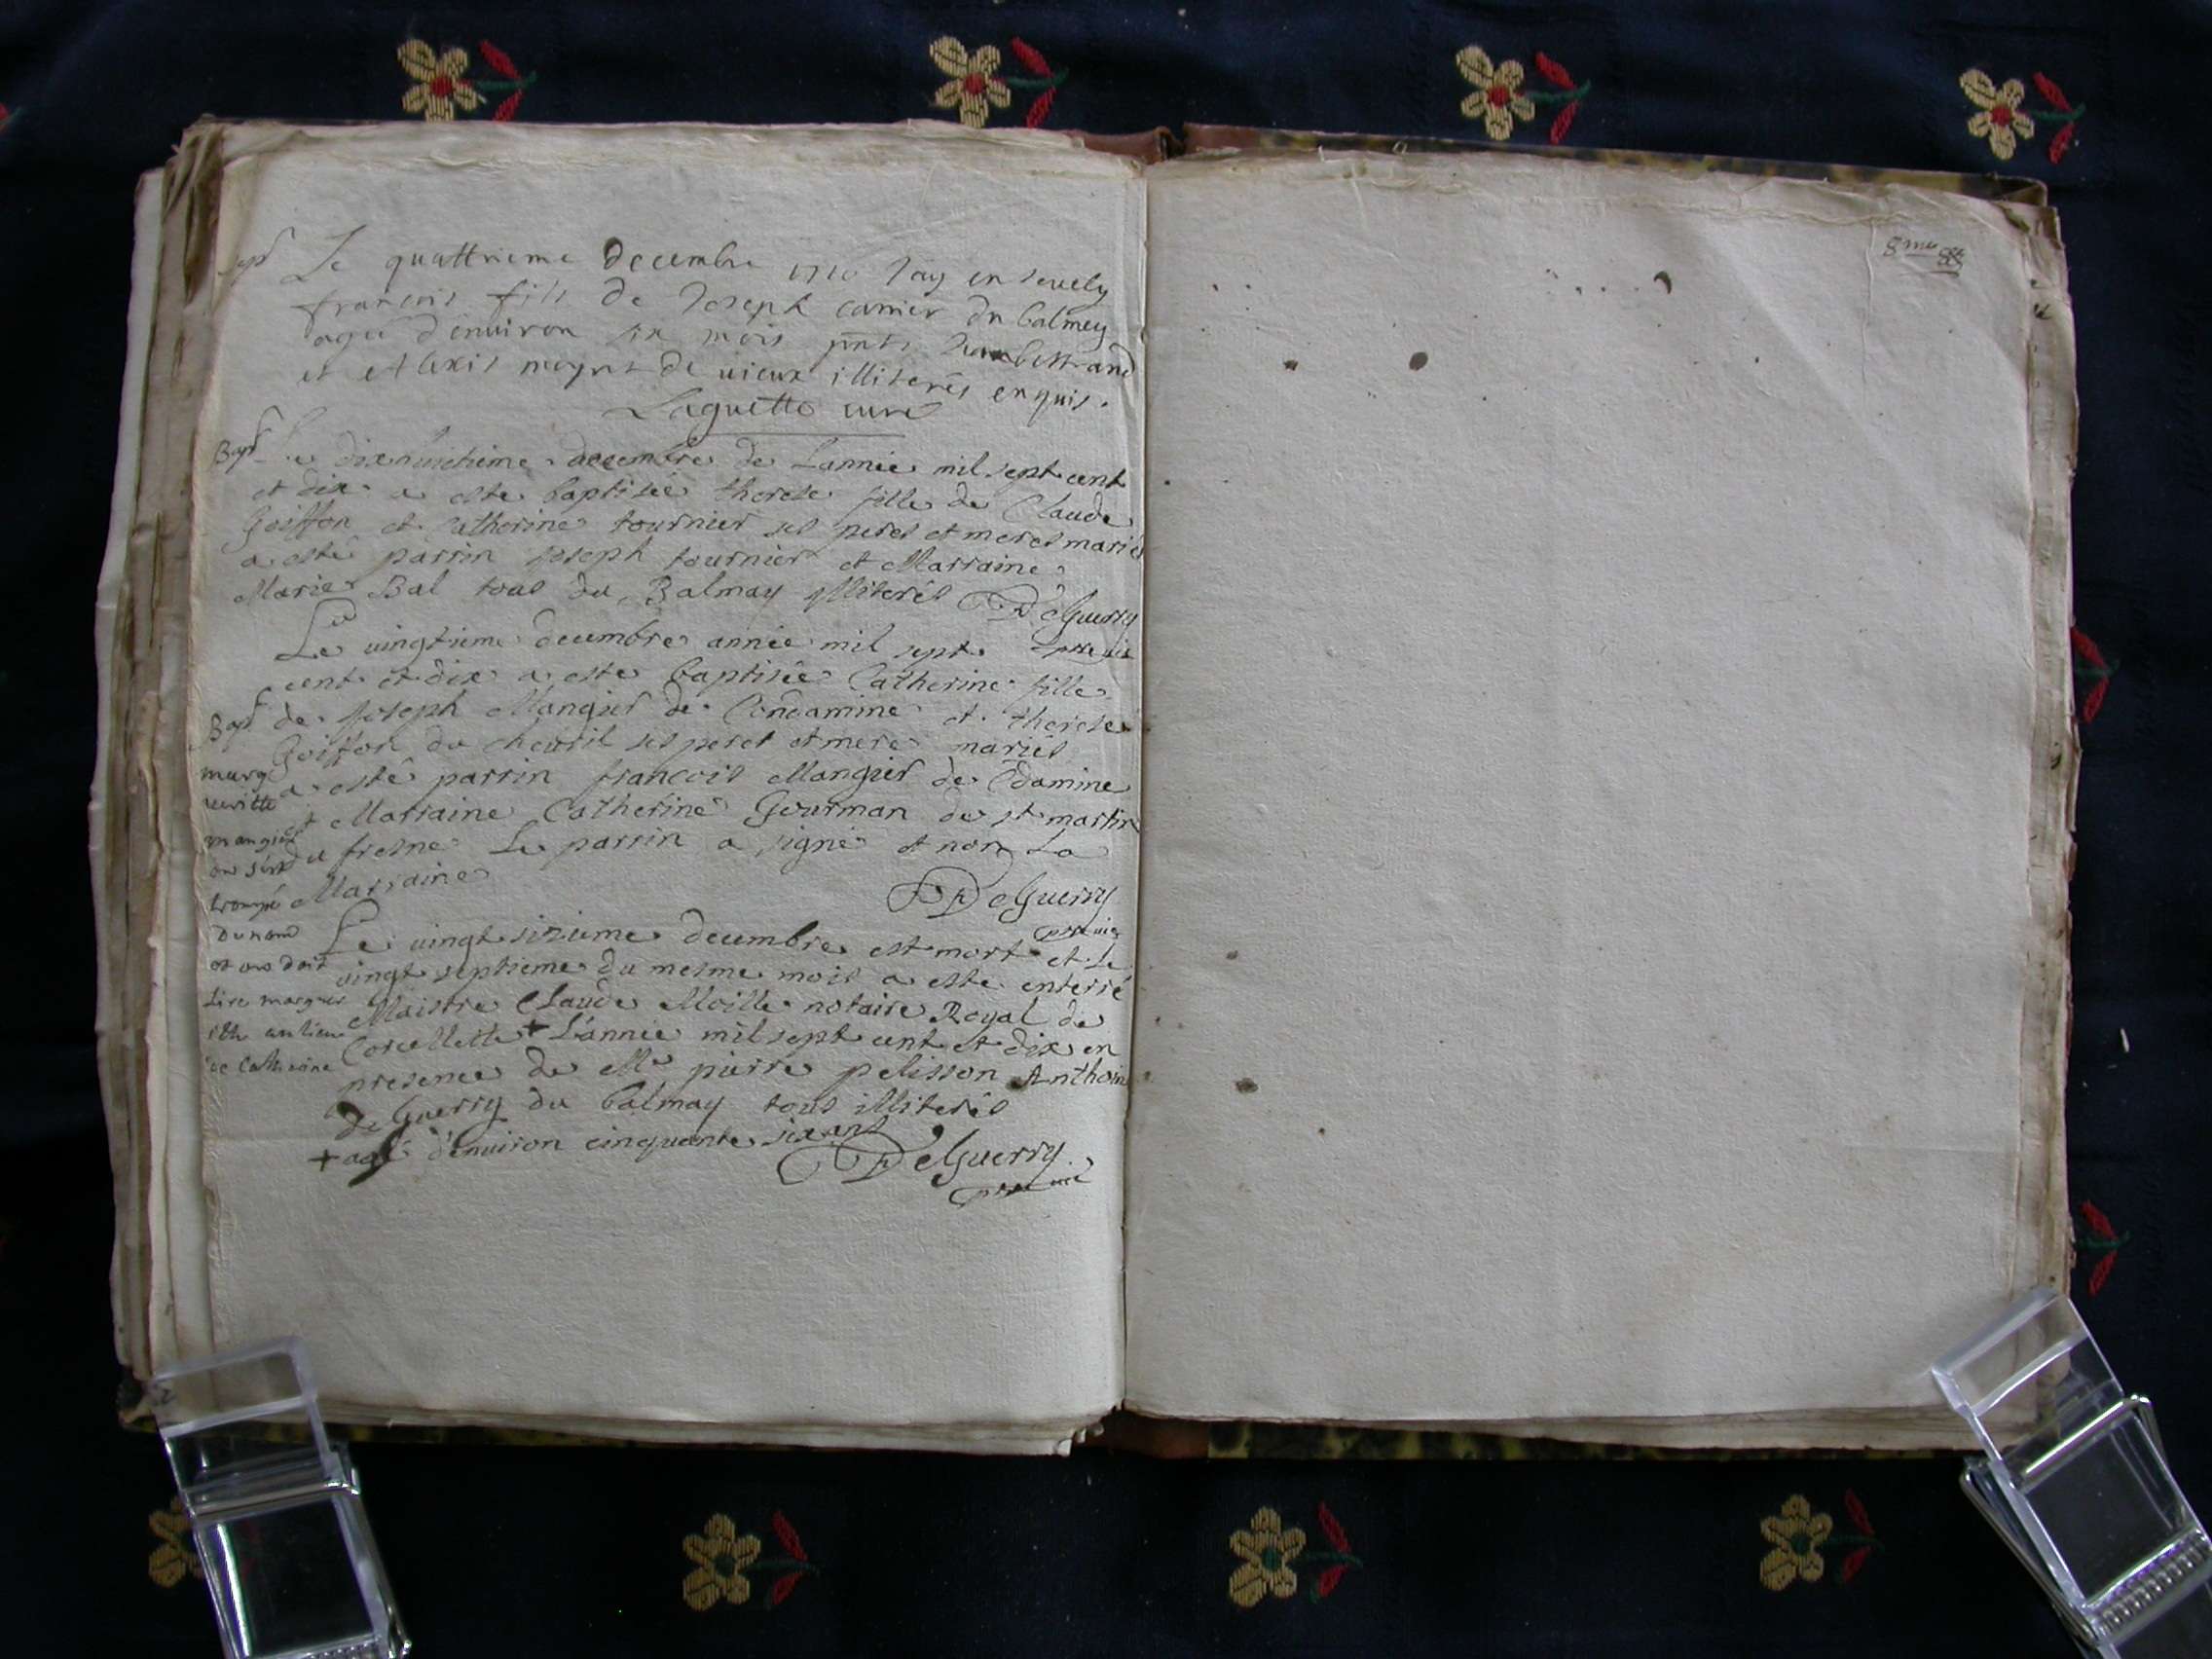 Sep Le quattrieme decembre 1710 Jay ensevely
francois fils de Joseph carrier du balmey
agé d'enuiron six mois pnts bertrand
et Alexis moyret de uieux illiterés enquis.
Laguette curé
Bapt Le dixhuictieme decembre de Lannée mil sept cent
et dix a esté baptisée therese fille de Claude
Goiffon et Catherine tournier ses peres et meres mariés
a esté parrin joseph tournier et Marraine
Marie Bal tous du Balmay illiterés DeGuerry
ptre vic
Le uingtieme decembre année mil sept
cent et dix a esté baptisée Catherine fille
Bapt de joseph Mangier de Condamine et therese
Goiffon du cheuril ses peres et mere mariés
a esté parrin francois Mangier de Cdamine
et Marraine Catherine Gourman de st martin
du fresne Le parrin a signé et non La
Marraine
DeGuerry
ptre vic
marg
ueritte
mangier
on s'est
trompé
du nom
et on doit
Lire marguer
itte au lieu
de Catherine
Le uingt sixieme decembre est mort et Le
uingt septieme du mesme mois a esté enterré
Maistre Claude Moille notaire Royal de
Corcellette + Lannée mil sept cent et dix en
presence de Me pierre pelisson Anthoin
de Guerry du balmay tous illiterés
+ agé d'enuiron cinquante six ans
DeGuerry
ptre vic
8me